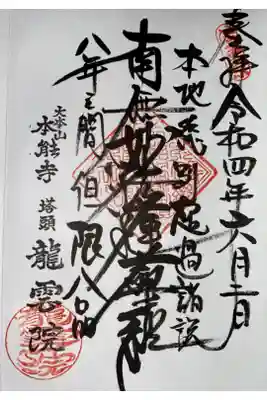 奉拝 令和四年六月二日
本地 過諸説
南無妙法蓮華経
八年之間但限八品
大本山 本能寺 塔頭 龍雲院